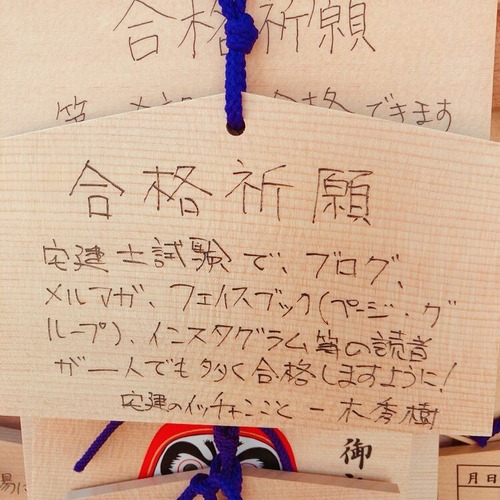 合格祈願
合格できます
合格祈願
宅建士試験で、ブログ、
メルマガ、フェイスブック(ページ・グ
ループ)、インスタグラム等の読者
が一人でも多く合格しますように!
宅建のイッチャンこと一木秀樹
御
月日